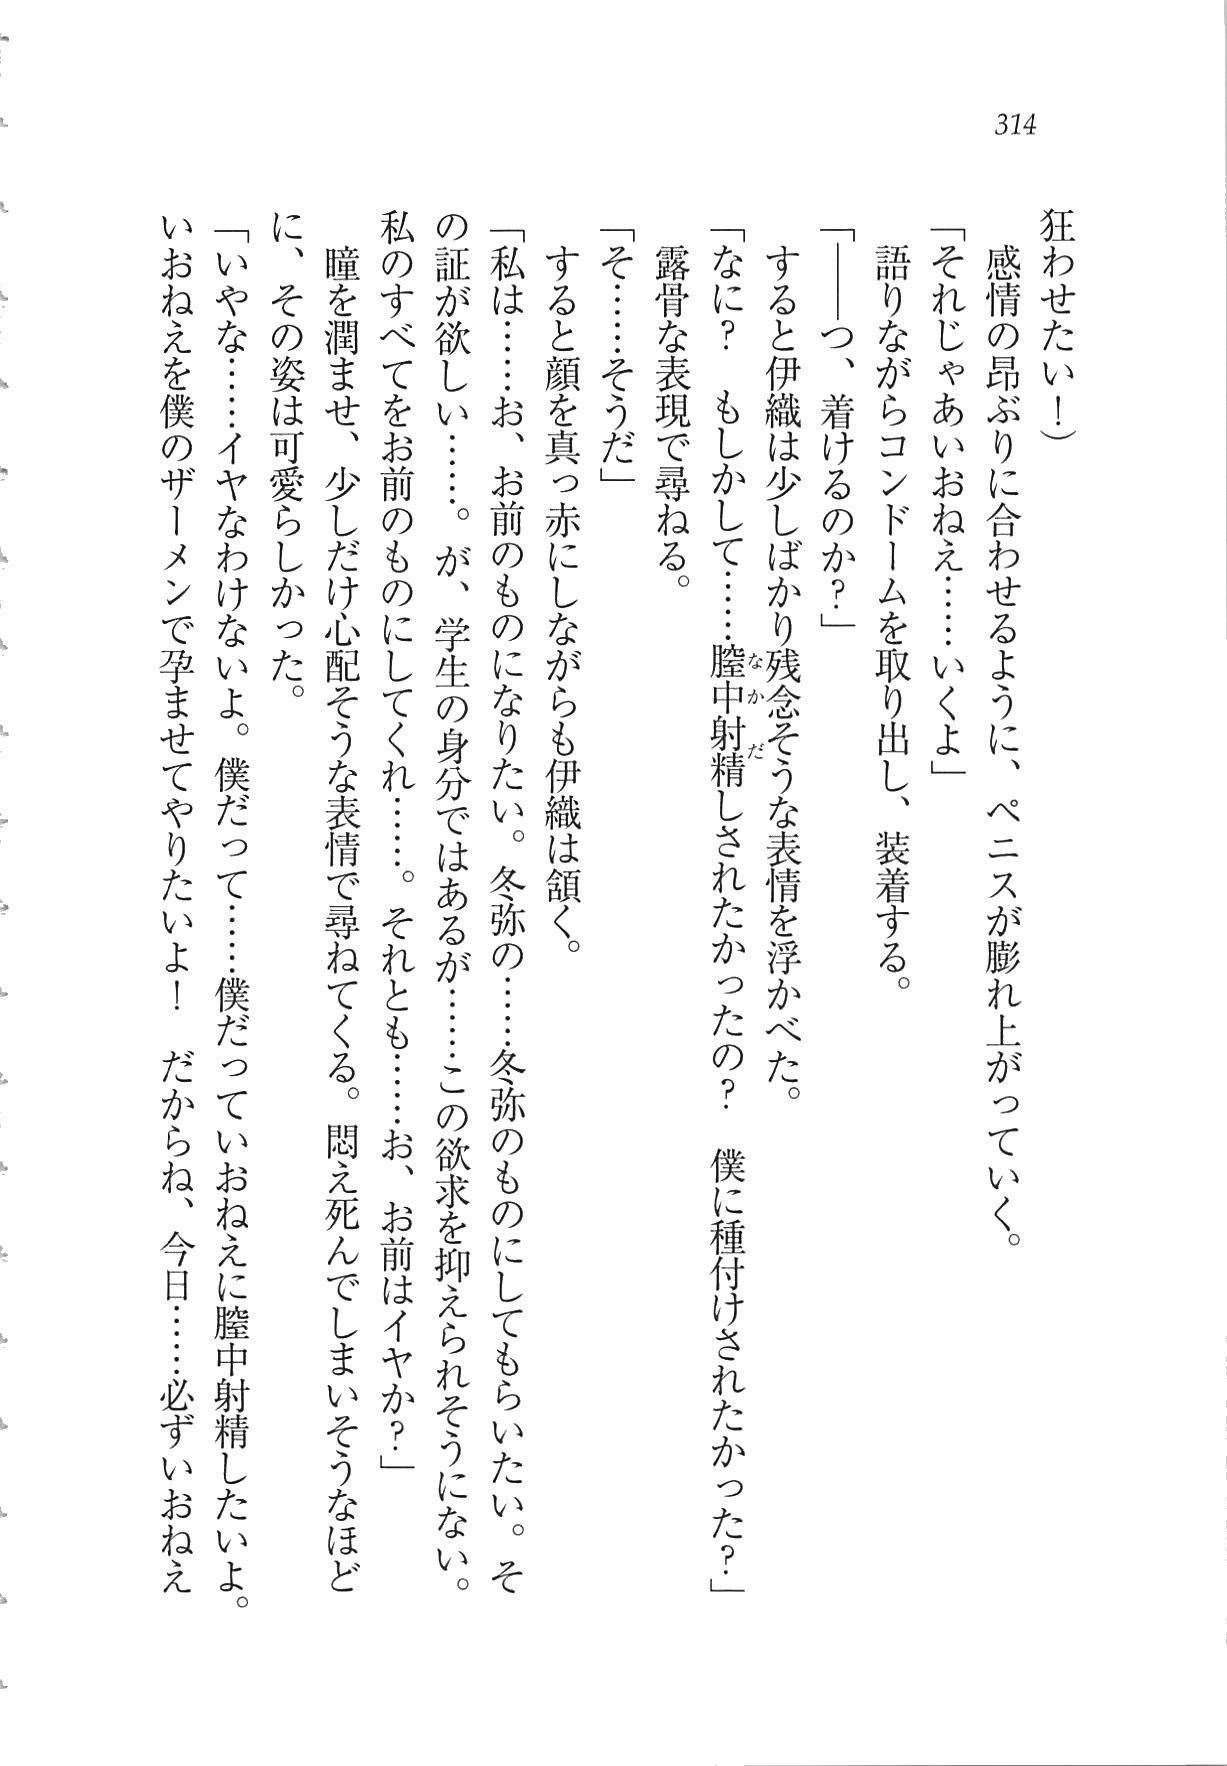 314
狂わせたい！）
　感情の昂ぶりに合わせるように、ペニスが膨れ上がっていく。
「それじゃあいおねえ……いくよ」
　語りながらコンドームを取り出し、装着する。
「――つ、着けるのか？」
　すると伊織は少しばかり残念そうな表情を浮かべた。
「なに？　もしかして……膣中射精しされたかったの？　僕に種付けされたかった？」
なかだ
　露骨な表現で尋ねる。
「そ……そうだ」
　すると顔を真っ赤にしながらも伊織は頷く。
「私は……お、お前のものになりたい。冬弥の……冬弥のものにしてもらいたい。そ
の証が欲しい……。が、学生の身分ではあるが……この欲求を抑えられそうにない。
私のすべてをお前のものにしてくれ……。それとも……お、お前はイヤか？」
　瞳を潤ませ、少しだけ心配そうな表情で尋ねてくる。悶え死んでしまいそうなほど
に、その姿は可愛らしかった。
「いやな……イヤなわけないよ。僕だって……僕だっていおねえに膣中射精したいよ。
いおねえを僕のザーメンで孕ませてやりたいよ！　だからね、今日……必ずいおねえ